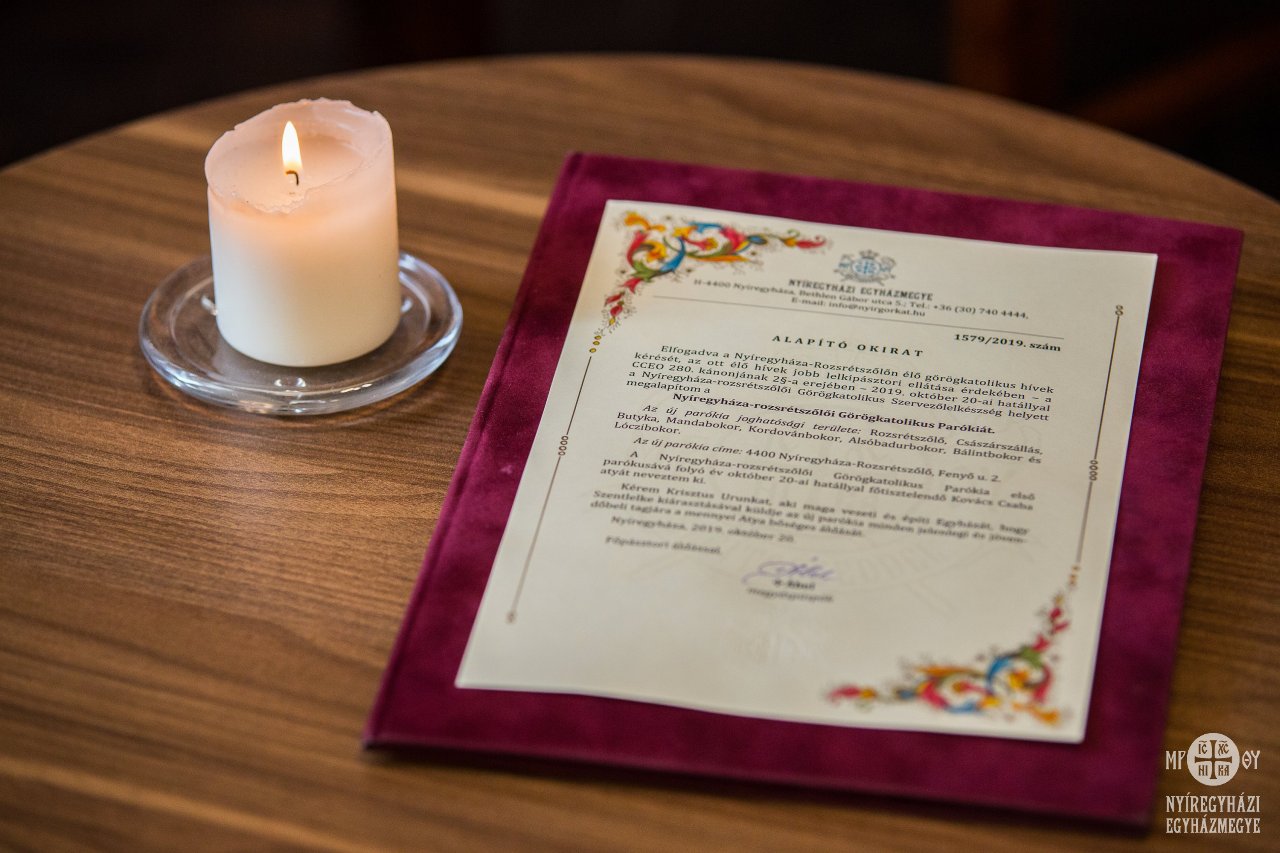 NYÍREGYHÁZI EGYHÁZMEGYE
H-4400 Nyíregyháza, Bethlen Gábor utca 5.; Tel.: +36 (30) 740 4444,
E-mail: info@nyirgorkat.hu
1579/2019. szám
ALAPÍTÓ OKIRAT
Elfogadva a Nyíregyháza-Rozsrétszőlőn élő görögkatolikus hívek
kérését, az ott élő hívek jobb lelkipásztori ellátása érdekében – a
CCEO 280. kánonjának 2§-a erejében – 2019. október 20-ai hatállyal
a Nyíregyháza-rozsrétszőlői Görögkatolikus Szervezőlelkészség helyett
megalapítom a
Nyíregyháza-rozsrétszőlői Görögkatolikus Parókiát.
Az új parókia joghatósági területe: Rozsrétszőlő, Császárszállás,
Butyka, Mandabokor, Kordovánbokor, Alsóbadurbokor, Bálintbokor és
Lóczibokor.
Az új parókia címe: 4400 Nyíregyháza-Rozsrétszőlő, Fenyő u. 2.
A Nyíregyháza-rozsrétszőlői Görögkatolikus Parókia első
parókusává folyó év október 20-ai hatállyal főtisztelendő Kovács Csaba
atyát neveztem ki.
Kérem Krisztus Urunkat, aki maga vezeti és építi Egyházát, hogy
Szentlelke kiárasztásával küldje az új parókia minden jelenlegi és jöven-
dőbeli tagjára a mennyei Atya bőséges áldását.
Nyíregyháza, 2019. október 20.
Főpásztori áldással
megyéspüspök
ΜΡ ΘΥ
IC XC
NI KA
NYÍREGYHÁZI
EGYHÁZMEGYE